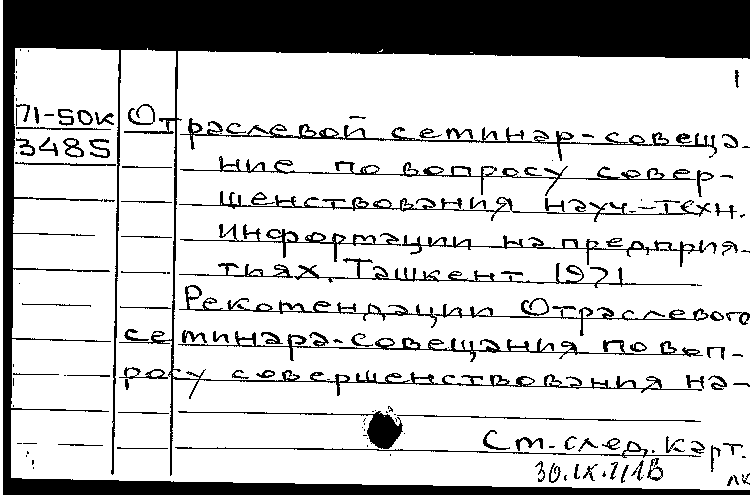 1
71-50к Отраслевой семинар-совеща-
3485 ние по вопросу совер-
шенствования науч.-техн.
информации на предприя-
тиях. Ташкент. 1971
Рекомендации Отраслевого
семинара-совещания по воп-
росу совершенствования на-
См. след. карт.
30.IX.71
лк